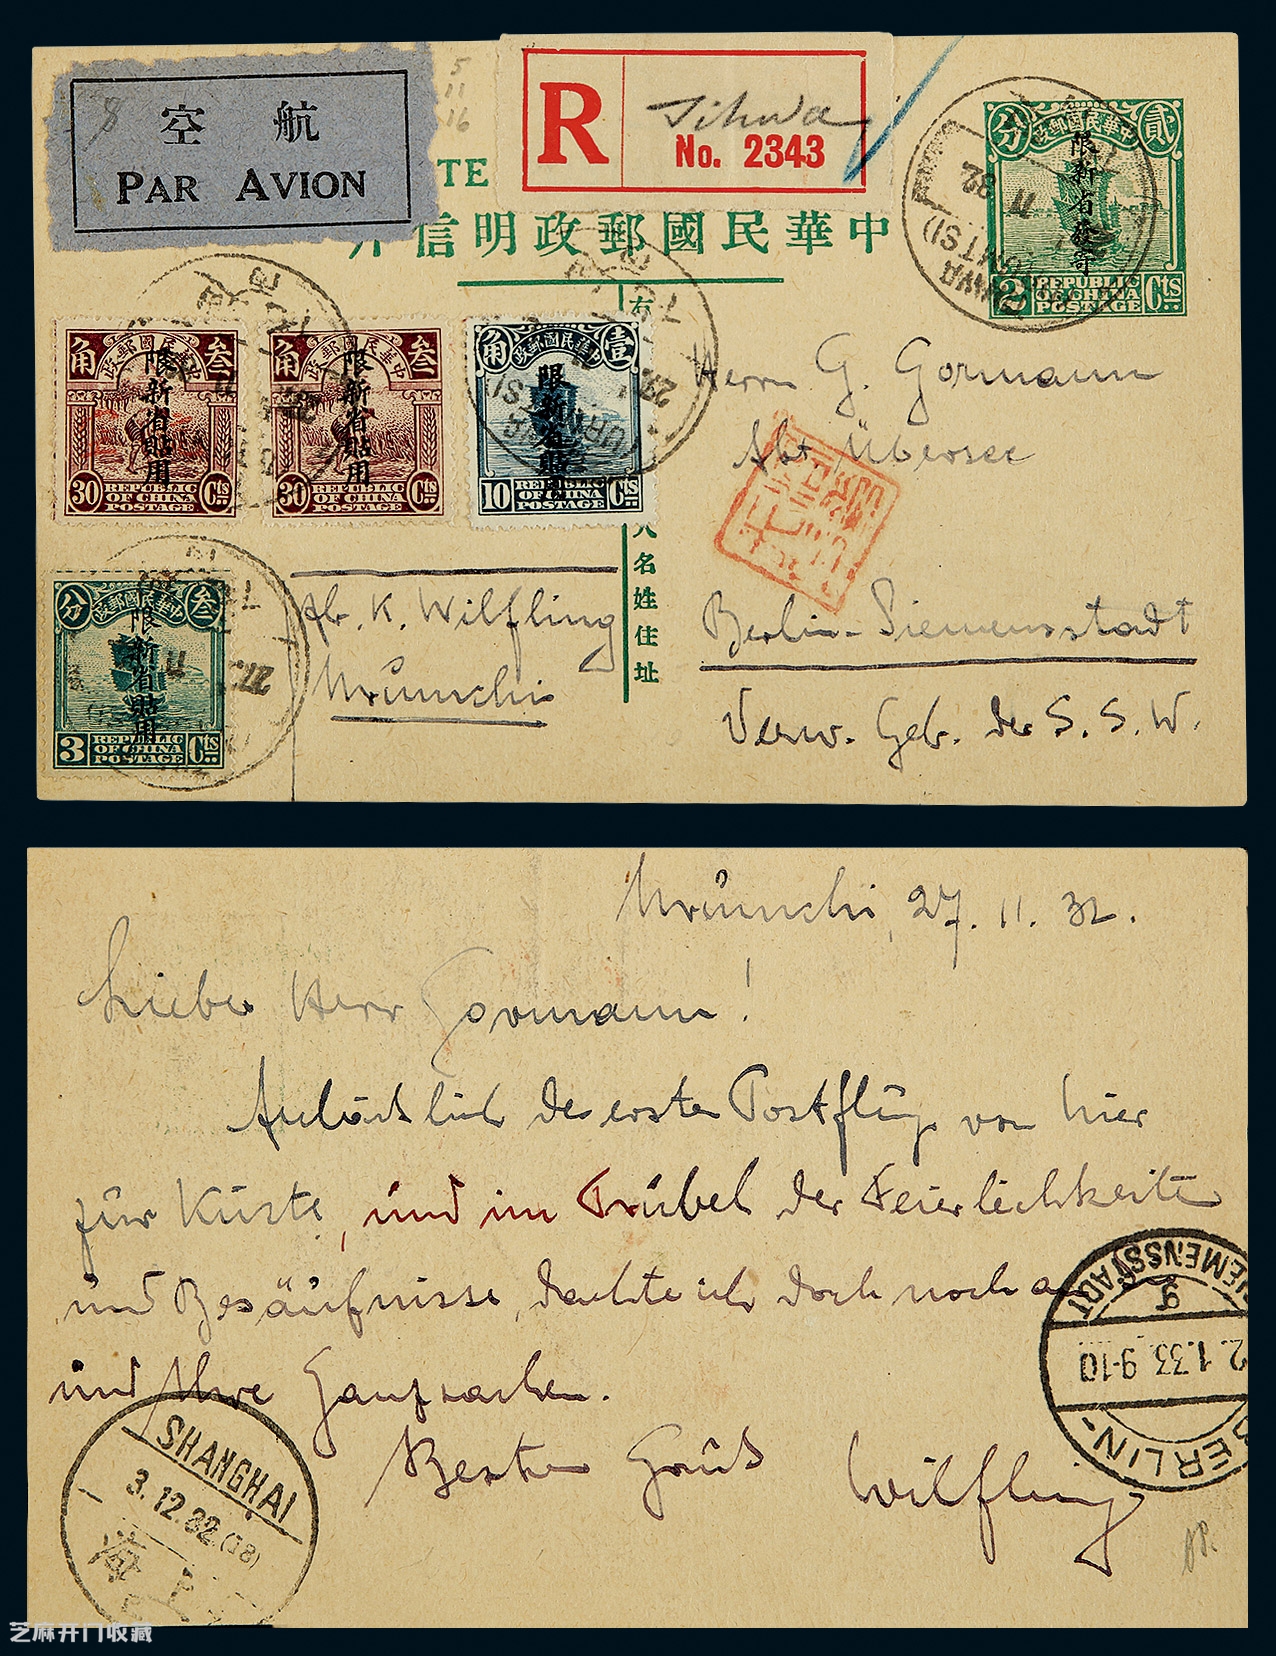 航 空
PAR AVION
5
11
16
R
Tihwa
No. 2343
TE
中華民國郵政明信片
中華民國郵政
貳 分
限新省發寄
2 Cts
REPUBLIC
OF CHINA
POSTAGE
叁 角
中華民國郵政
限新省貼用
30 Cts
REPUBLIC
OF CHINA
POSTAGE
叁 角
中華民國郵政
限新省貼用
30 Cts
REPUBLIC
OF CHINA
POSTAGE
壹 角
中華民國郵政
限新省貼用
10 Cts
REPUBLIC
OF CHINA
POSTAGE
叁 分
中華民國郵政
限新省貼用
3 Cts
REPUBLIC
OF CHINA
POSTAGE
人名姓住址
Herrn G. Gormann
Abt. Übersee
Berlin-Siemensstadt
Verw. Geb. der S. S. W.
Ab. K. Wilfling
Urumchi
Urumchi, 27. 11. 32.
Lieber Herr Gormann!
Anlässlich des ersten Postflugs von hier
zur Küste, und im Trubel der Feierlichkeiten
und Besäufnisse, dachte ich doch noch an
und Ihre
Besten Gruß
Wilfling
SHANGHAI
3.12.32 (18)
海 上
SIEMENSSTADT
g
2.1.33. 9-10
BERLIN-
芝麻开门收藏